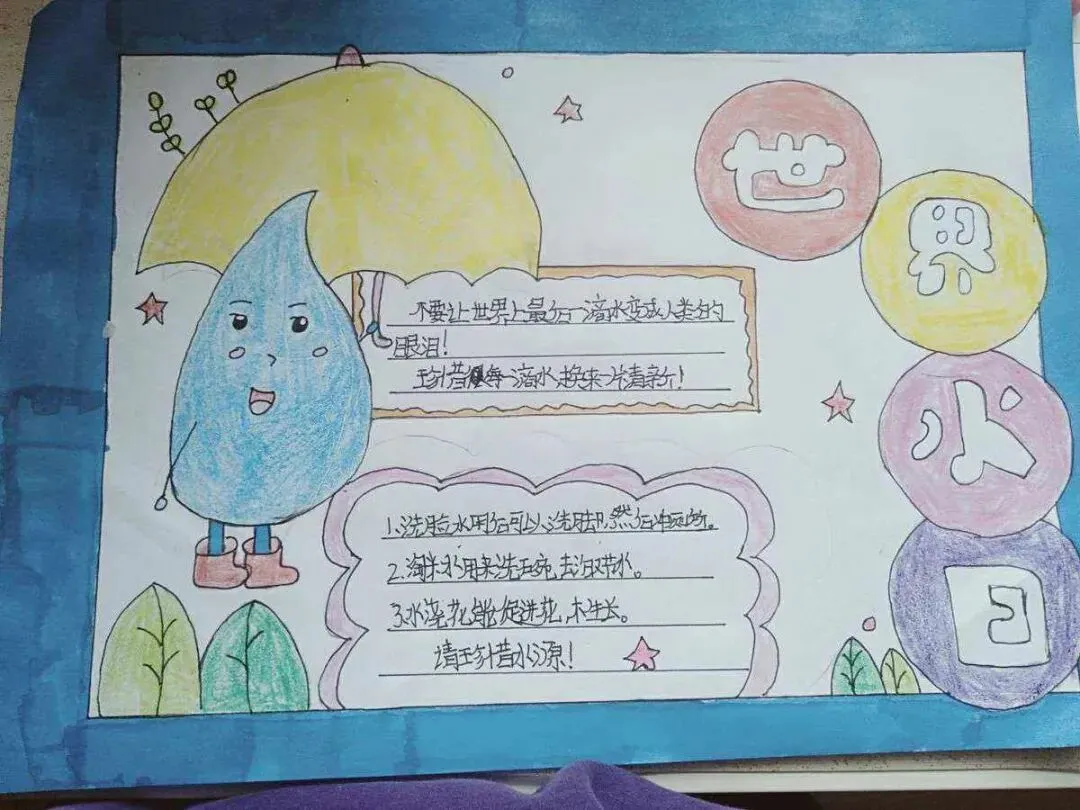 世界水日
不要让世界上最后一滴水变成人类的
眼泪!
珍惜每一滴水 换来一片清新!
1.洗脸水用后可以洗脚,然后冲厕所。
2.淘米水用来洗碗,去节水。
3.水浇花,能促进花,木生长。
请珍惜水源!